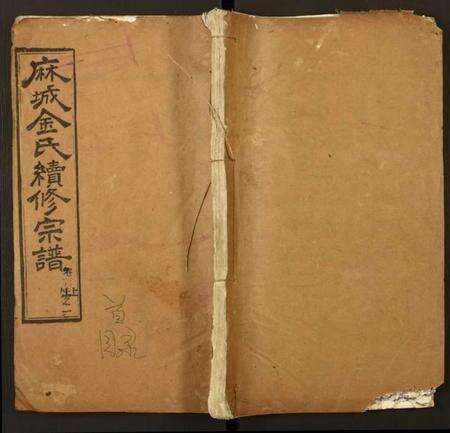 麻城金氏續修宗譜
卷
上
之二
首